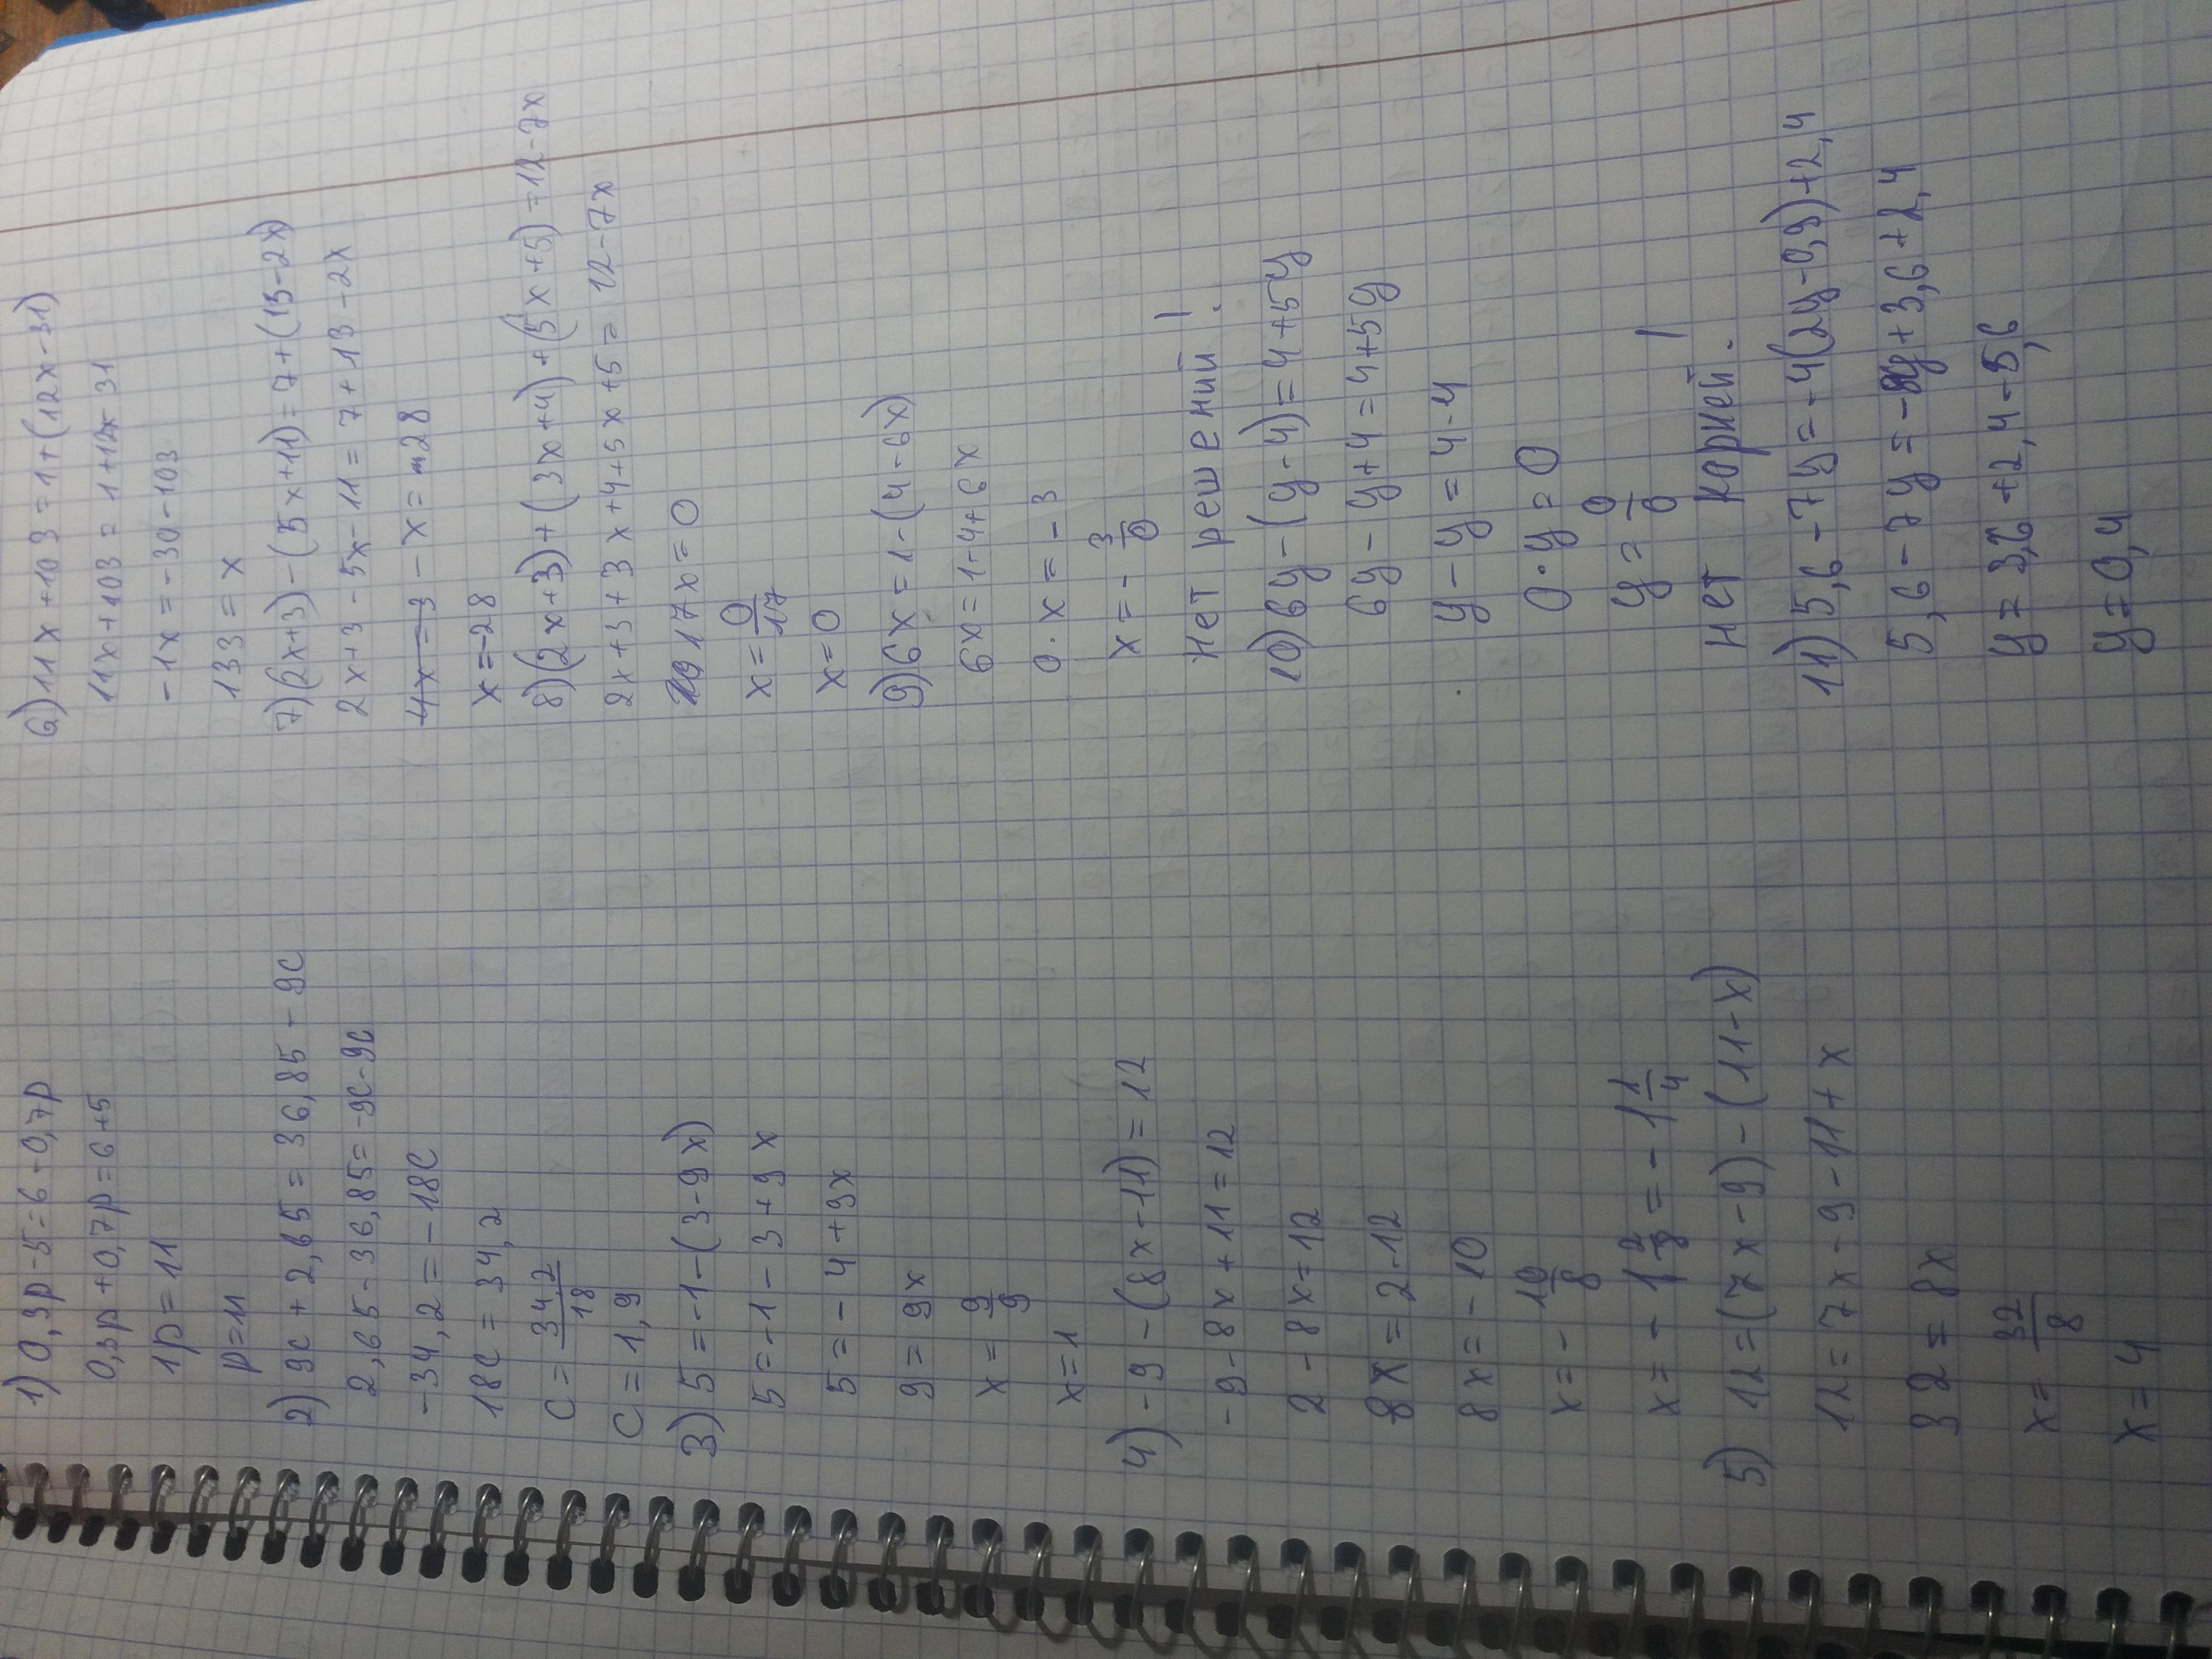 1) 0,3p-5=6-0,7p
0,3p+0,7p=6+5
1p=11
p=11
2) 9c+2,65=36,85-9c
2,65-36,85=-9c-9c
-34,2=-18c
18c=34,2
c=34,2/18
c=1,9
3) 5=-1-(3-9x)
5=-1-3+9x
5=-4+9x
9=9x
x=9/9
x=1
4) -9-(8x-11)=12
-9-8x+11=12
2-8x=12
8x=2-12
8x=-10
x=-10/8
x=-1 2/8=-1 1/4
5) 12=(7x-9)-(11-x)
12=7x-9-11+x
32=8x
x=32/8
x=4
6) 11x+103=1+(12x-31)
11x+103=1+12x-31
-1x=-30-103
133=x
7) (2x+3)-(5x+11)=7+(13-2x)
2x+3-5x-11=7+13-2x
-x=28
x=-28
8) (2x+3)+(3x+4)+(5x+5)=12-7x
2x+3+3x+4+5x+5=12-7x
17x=0
x=0/17
x=0
9) 6x=1-(4-6x)
6x=1-4+6x
0·x=-3
x=-3/0
Нет решений!
10) 6y-(y-4)=4+5y
6y-y+4=4+5y
y-y=4-4
0·y=0
y=0/0
нет корней.
11) 5,6-7y=-4(2y-0,9)+2,4
5,6-7y=-8y+3,6+2,4
y=3,6+2,4-5,6
y=0,4